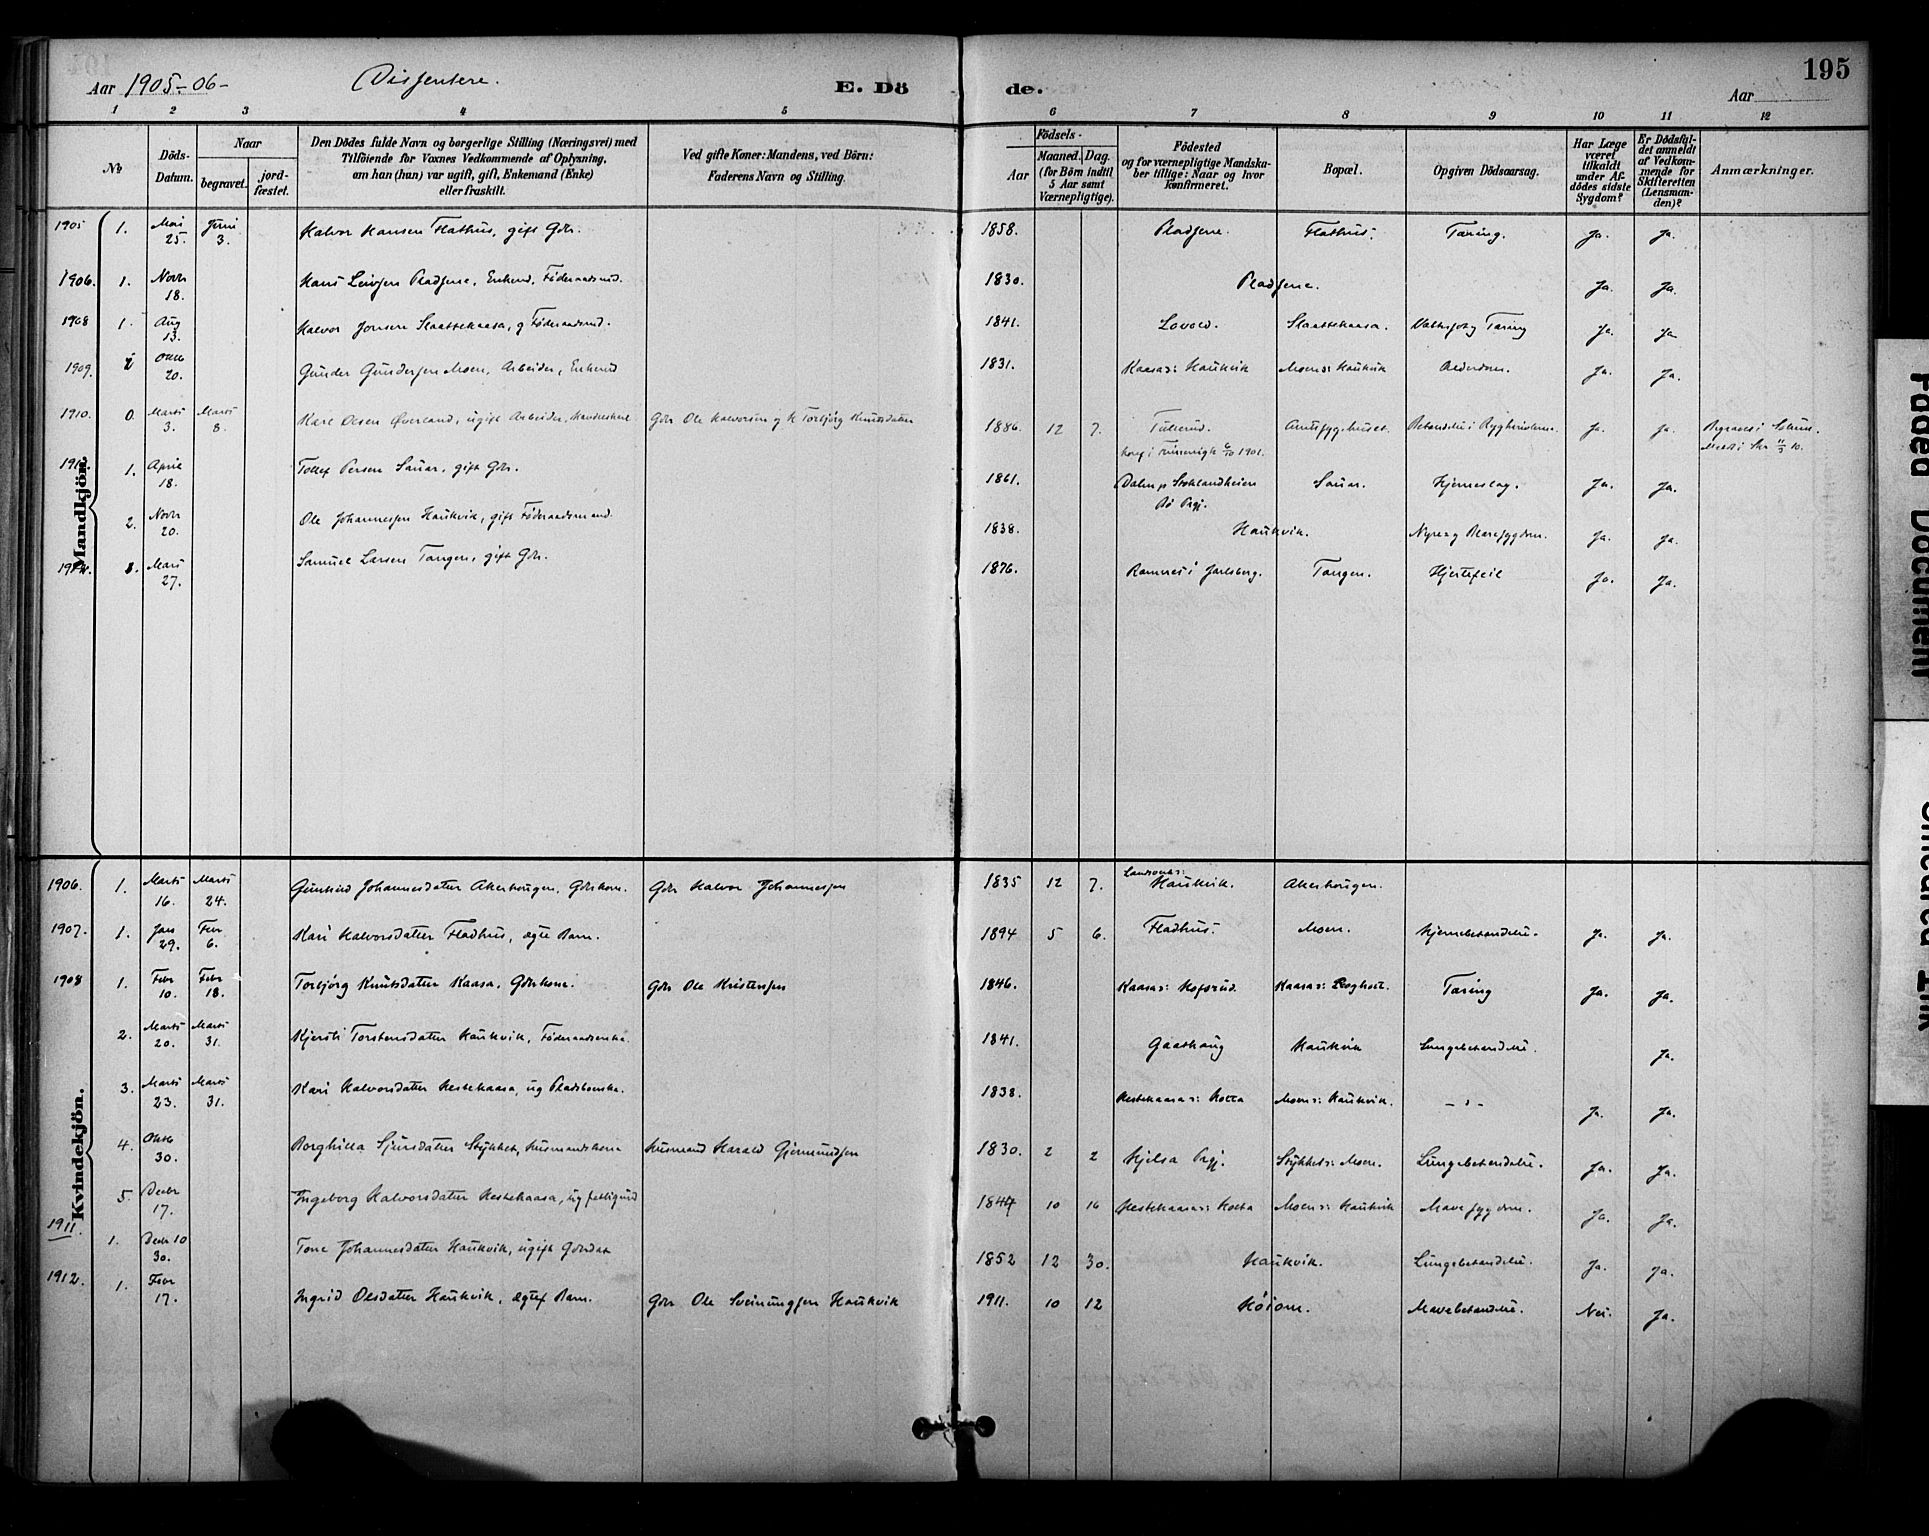 195
Aar 1905-06- Dissentere. E. Dö de. Aar
1 2 3 4 5 6 7 8 9 10 11 12
No
Döds-Datum.
Naar
begravet. jordfæstet.
Den Dödes fulde Navn og borgerlige Stilling (Næringsvei) med
Tilföiende for Voxnes Vedkommende af Oplysning,
om han (hun) var ugift, gift, Enkemand (Enke)
eller fraskilt.
Ved gifte Koner: Mandens, ved Börn:
Faderens Navn og Stilling.
Födsels-
Aar
Maaned. Dag.
(for Börn indtil
5 Aar samt
Værnepligtige).
Födested
og for værnepligtige Mandska-
ber tillige: Naar og hvor
konfirmeret.
Bopæl.
Opgiven Dödsaarsag.
Har Læge
været
tilkaldt
under Af-
dödes sidste
Sygdom?
Er Dödsfal-
det anmeldt
af Vedkom-
mende for
Skifteretten
(Lensman-
den)?
Anmærkninger.
Mandkjön.
1905 1. Mai 25. Juni 3. Halvor Hansen Flathus, gift Gbr. 1858. Pladsene. Flathus. Tæring. Ja. Ja.
1906. 1. Novbr 18. Hans Leivsen Pladsene, Enkemd, Föderaadsmd. 1830. Pladsene. Ja. Ja.
1908 1. Aug 13. Halvor Jonsen Slaattekaasa, g Föderaadsmd. 1841. Lovold. Slaattekaasa. Tæring Ja. Ja
1909. 1 Oktb 20. Gunder Gundersen Moen, Arbeider, Enkemd 1831. Kaasa: Haukvik Moen: Haukvik Alderdom. Ja. Ja.
1910. 0. Marts 3. Marts 8. Karl Olsen Øverland, ugift Arbeider, Gbr Ole Halvorsen og K Torbjörg Knutsdatter 1886. 12 7. 1901. Amtssygehuset. Betændelse i Ja. Ja.
1. April 18. Tollef Persen Sauar, gift Gbr. 1861. Dalen p Stoklandheien Bö Prgj. Sauar. Hjerneslag. Ja. Ja.
2. Novbr 20. Ole Johannessen Haukvik, gift Föderaadsmand. 1838. Haukvik. Nyre og Blæresygdom. Ja. Ja.
Mars 27. Samuel Larsen Tangen, gift Gbr. 1876. Ramnes i Jarlsberg. Tangen. Hjertefeil Ja. Ja.
Kvindekjön.
1906. 1. Marts 16. Marts 24. Gunhild Johannesdatter Akerhaugen, Gbrkone. Gbr Halvor Johannessen 1835 12 7. Haukvik. Akerhaugen.
1907. 1. Jan 29. Febr 6. Kari Halvorsdatter Fladhus, ægte Barn. 1894 5 6. Fladhus. Moen. Hjernebetændelse. Ja. Ja.
1908 1. Febr 10. Febr 18. Torbjörg Knutsdatter Kaasa, Gbrkone. Gbr Ole Kristensen 1846. Kaasa: Hofsrud. Kaasa: Tæring Ja. Ja.
2. Marts 20. Marts 31. Kjersti Torstensdatter Haukvik, Föderaadsenke. 1841. Gaashaug Haukvik Lungebetændelse. Ja.
3. Marts 23. Marts 31. Kari Halvorsdatter Hestekaasa, ug Pladskvinde. 1838. Hestekaasa: Kaasa Moen: Haukvik. - " - Ja. Ja.
4. Oktb 30. Borghilla Sjursdatter Stykket, Husmandskone Husmand Harald Gjermundsen 1830. 2 2 Hjelsa Prgj. Stykket: Moen. Lungebetændelse. Ja. Ja.
5. Decbr 17. Ingeborg Halvorsdatter Hestekaasa, ug 1847 10 16 Hestekaasa: Moen: Haukvik Mavesygdom. Ja. Ja.
1911. 1. Decbr 10 30. Tone Johannesdatter Haukvik, ugift Gbrdat 1852 12 30. Haukvik. Lungebetændelse. Ja. Ja.
1912. 1. Febr 17. Ingrid Olsdatter Haukvik, ægtef Barn. Gbr Ole Sveinungsen Haukvik 1911. 10 12 Mavebetændelse. Nei. Ja.
Faded Document